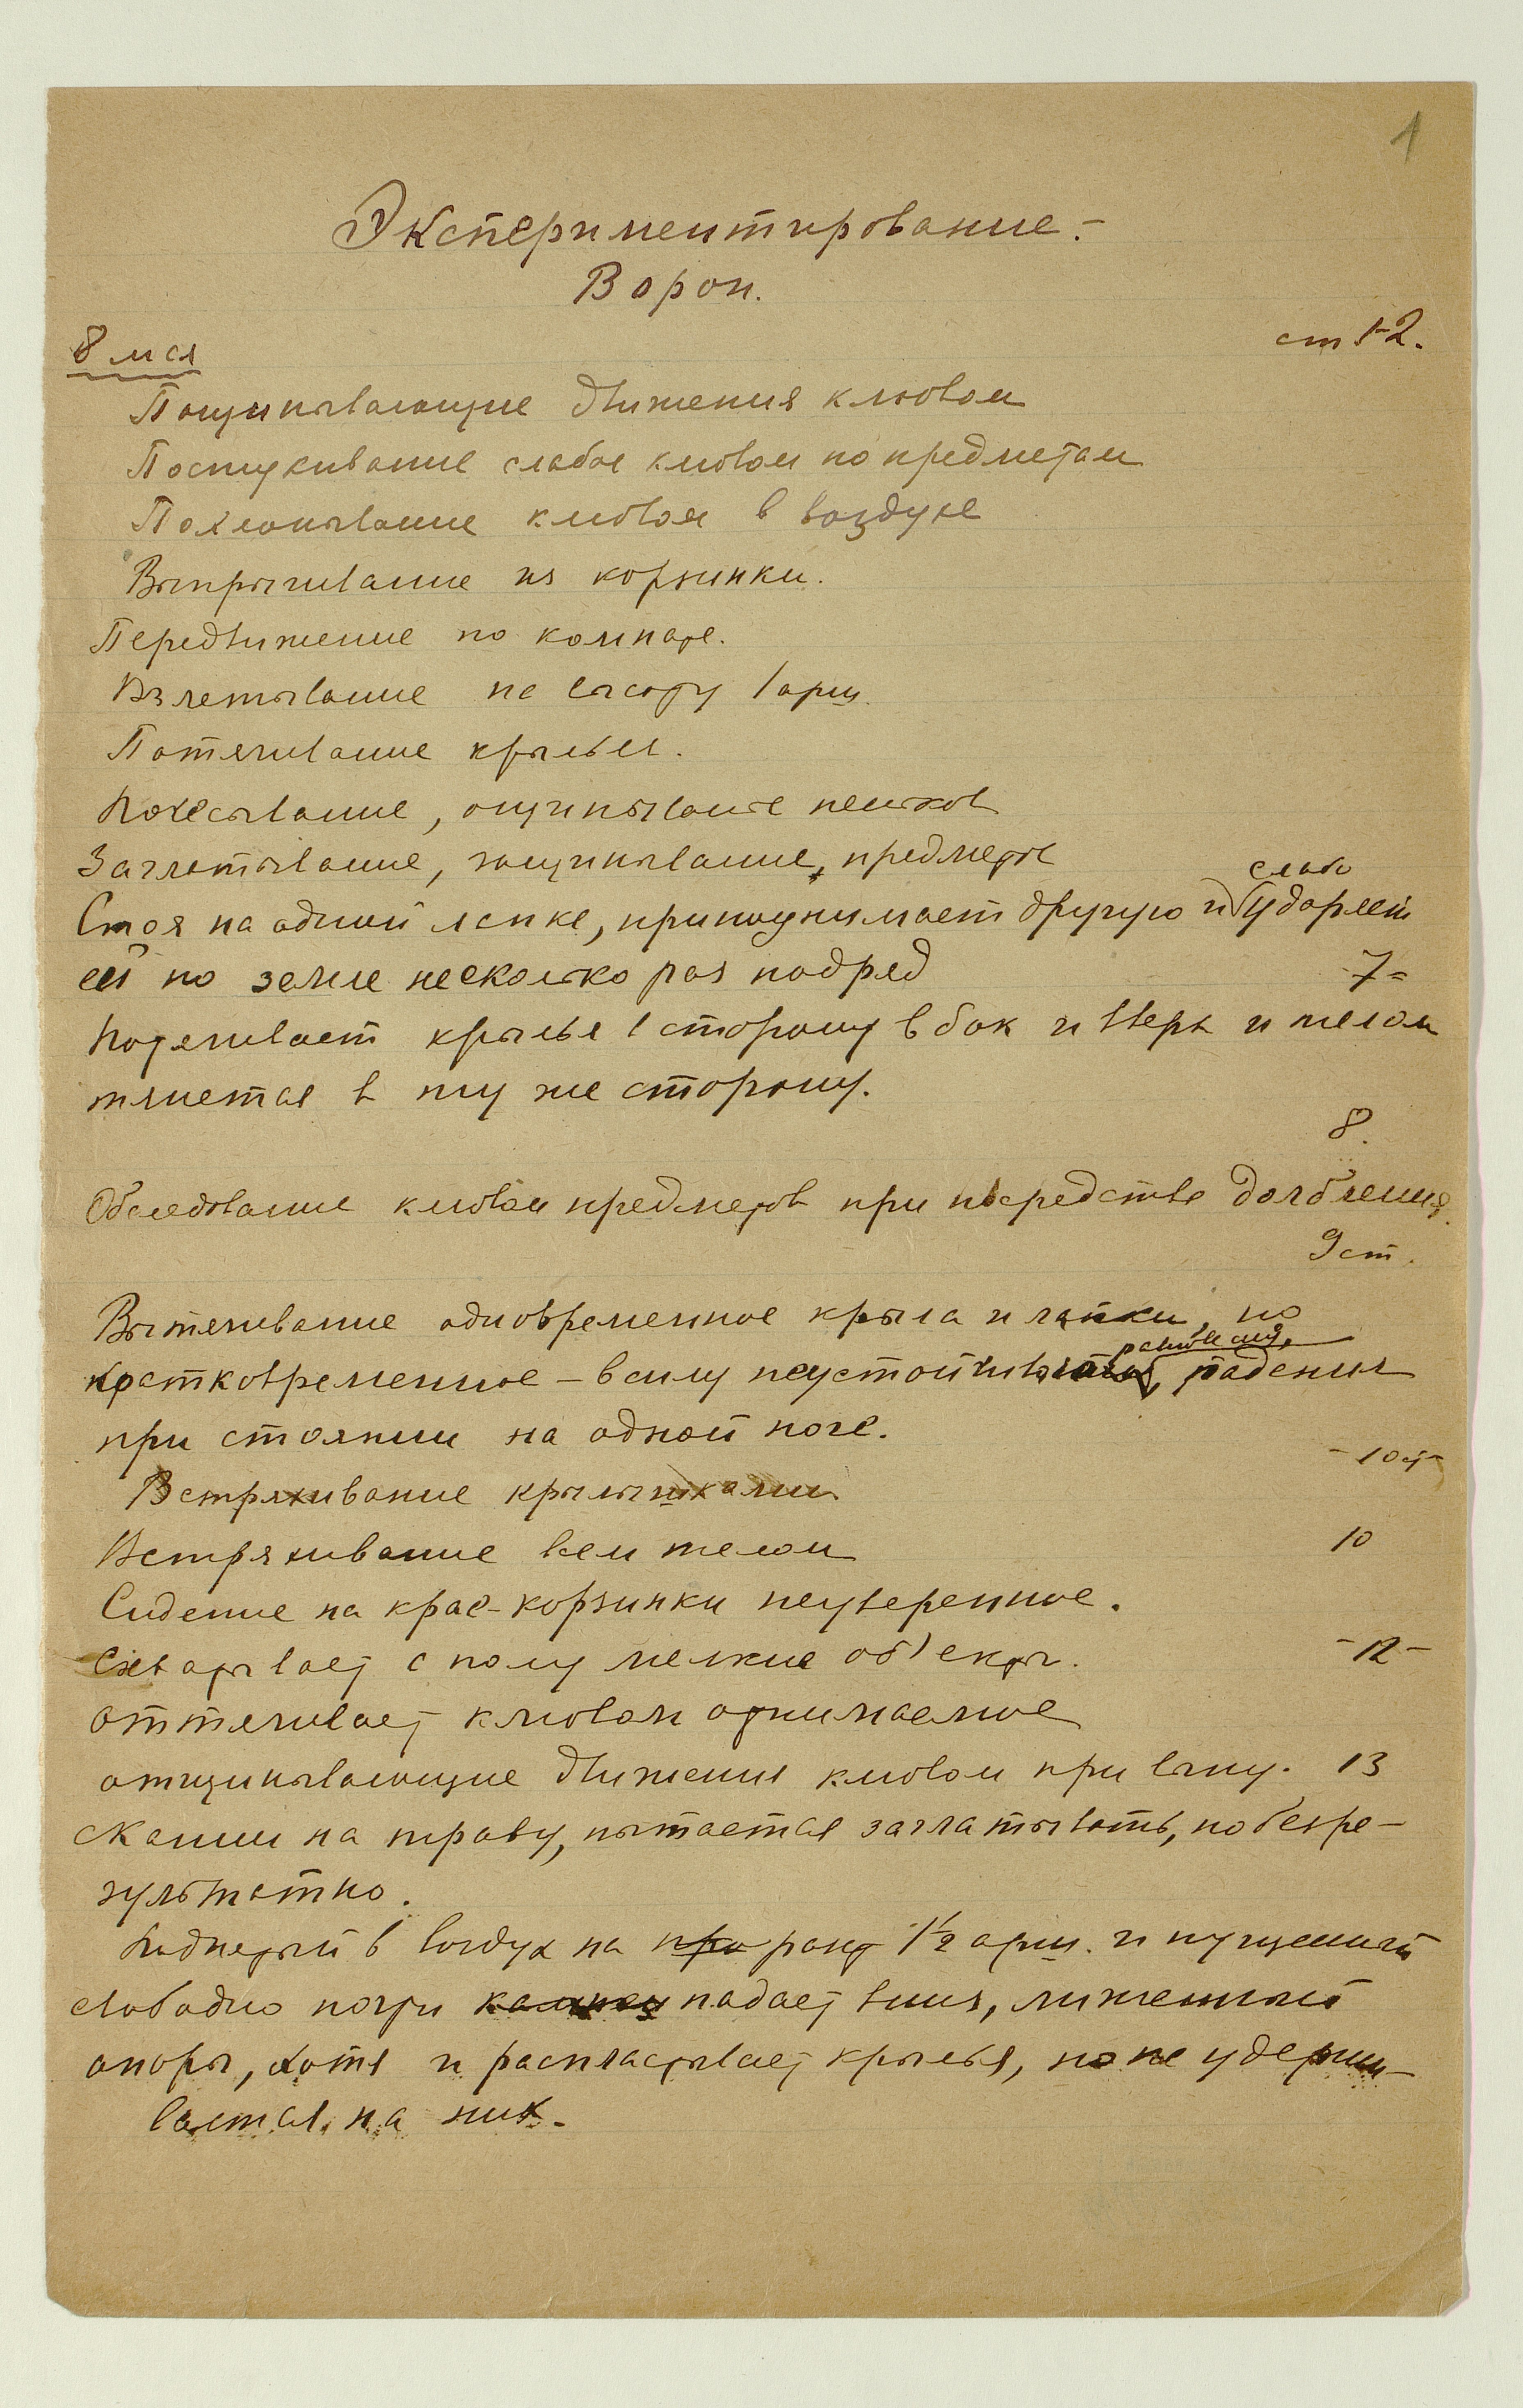 1
Экспериментирование.-
Ворон.
ст 1-2.
8 мая
Пощипывающие движения клювом
Постукивание слабое клювом по предметам
Похлопывание клювом в воздухе
Выпрыгивание из корзинки.
Передвижение по комнате.
Взлетывание на высоту 1 арш.
Потягивание крыльев.
Почесывание, ощипывание пешков
Заглатывание, защипывание, предметов
слабо
Стоя на одной лапке, приподнимает другую и ударяет
ей по земле несколько раз подряд
7=
Потягивает крылья в сторону в бок и вверх и телом
тянется в ту же сторону.
8.
Обследование клювом предметов при посредстве долбления.
9 ст.
Вытягивание одновременное крыла и лапки, но
равновесия,
кратковременное – в силу неустойчивости, падения
при стоянии на одной ноге.
- 10 ст -
Встряхивание крылышками
Встряхивание всем телом
10
Сидение на крае-корзинки неуверенное.
Схватывает с полу мелкие об'екты.
- 12 -
Оттягивает клювом отнимаемое
отщипывающие движения клювом при выпу-
13
скании на траву, пытается заглатывать, но безре-
зультатно.
Поднятый в воздух на про 1½ арш. и пущенный
свободно почти падает вниз, лишенный
опоры, хотя и распластывает крылья, но не удержи-
вается на них.